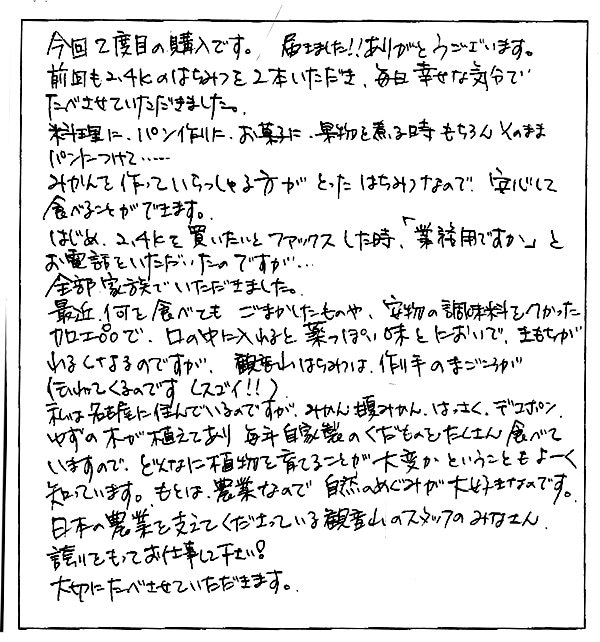 今回2度目の購入です。 届きました!!ありがとうございます。
前回も2.4Kのはちみつを2本いただき、毎日幸せな気分で
たべさせていただきました。
料理に、パン作りに、お菓子に、果物を煮る時もちろんそのまま
パンにつけて……
みかんを作っていらっしゃる方がとったはちみつなので、安心して
食べることができます。
はじめ、2.4Kを買いたいとファックスした時、「業務用ですか」と
お電話をいただいたのですが…
全部家族でいただきました。
最近、何を食べても ごまかしたものや、安物の調味料をつかった
加工品で、口の中に入れると薬っぽい味とにおいで、きもちが
わるくなるのですが、観音山はちみつは、作り手のまごころが
伝わってくるのです(スゴイ!!)
私は名古屋に住んでいるのですが、みかん、甘夏みかん、はっさく、デコポン、
ゆずの木が植えてあり 毎年自家製のくだものをたくさん食べて
いますので、どんなに植物を育てることが大変かということもよーく
知っています。もとは、農業なので 自然のめぐみが大好きなのです。
日本の農業を支えてくださっている観音山のスタッフのみなさん、
誇りをもってお仕事して下さい!
大切にたべさせていただきます。